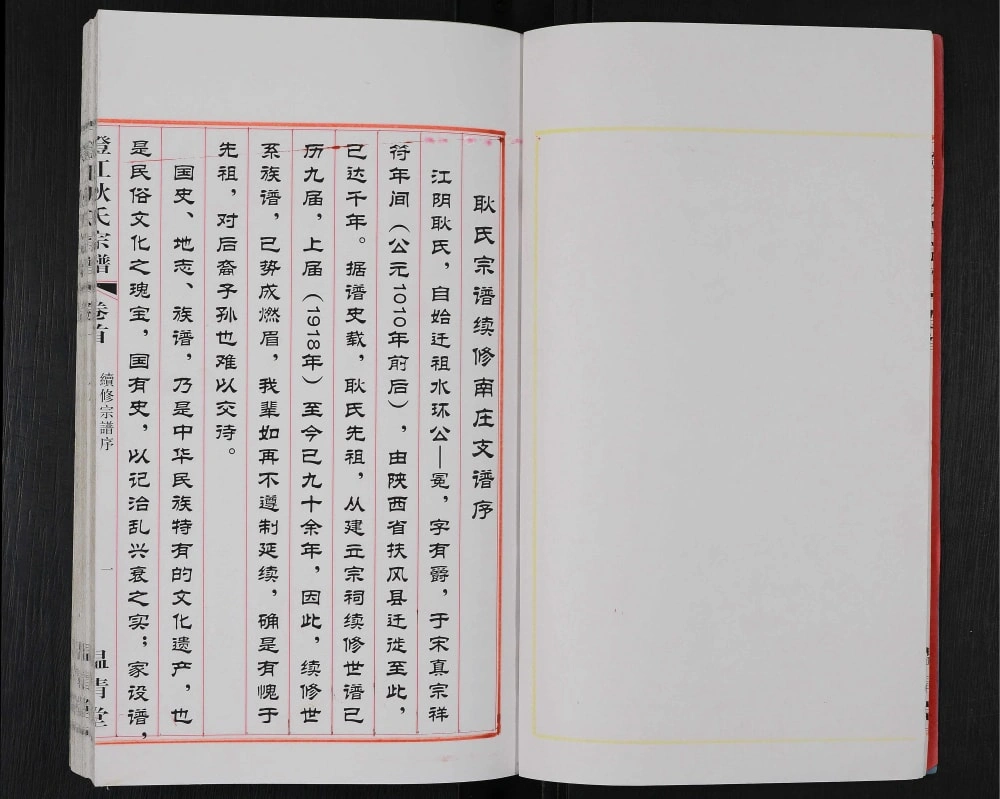 耿氏宗谱续修南庄支谱序
江阴耿氏，自始迁祖水环公—冕，字有爵，于宋真宗祥
符年间（公元1010年前后），由陕西省扶风县迁徙至此，
已达千年。据谱史载，耿氏先祖，从建立宗祠续修世谱已
历九届，上届（1918年）至今已九十余年，因此，续修世
系族谱，已势成燃眉，我辈如再不遵制延续，确是有愧于
先祖，对后裔子孙也难以交待。
国史、地志、族谱，乃是中华民族特有的文化遗产，也
是民俗文化之瑰宝，国有史，以记治乱兴衰之实；家设谱，
澄江耿氏宗谱
卷首
續修宗譜序
一